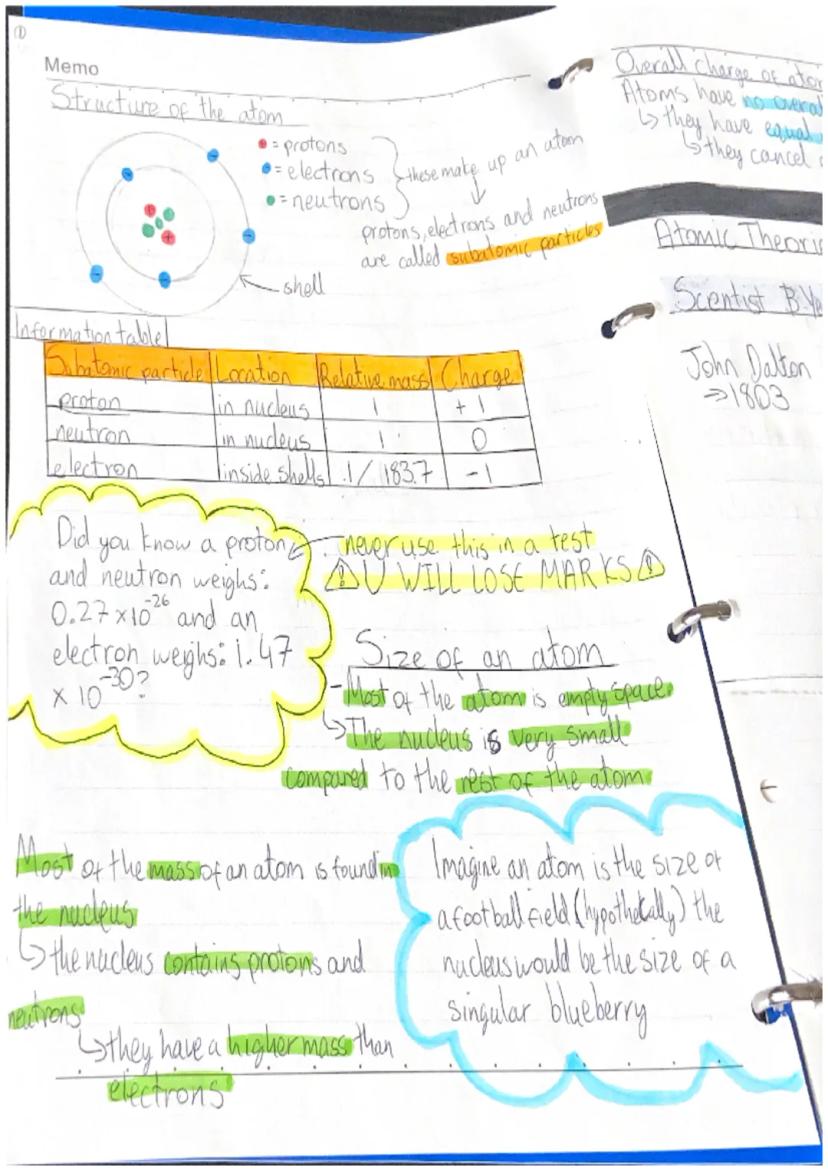 ①
Memo
Structure of the atom
= protons
= electrons
= neutrons
these make up an atom
protons, electrons and neutrons
are called subatomic particles
shell
Information table
Subatomic particle Location Relative mass Charge
proton in nucleus 1 +1
neutron in nucleus 1 0
electron inside shells 1/1837 -1
Did you know a proton
and neutron weighs:
0.27 x10-26 and an
electron weighs: 1.47
x 10-30?
never use this in a test
⚠ U WILL LOSE MARKS ⚠
Size of an atom
- Most of the atom is empty space
↳ The nucleus is very small
compared to the rest of the atom
Most of the mass of an atom is found in
the nucleus
↳ the nucleus contains protons and
neutrons
↳ they have a higher mass than
electrons
Imagine an atom is the size of
a football field (hypothetically) the
nucleus would be the size of a
singular blueberry
Overall charge of ato
Atoms have no overa
↳ they have equal
↳ they cancel
Atomic Theori
Scientist & Ye
John Dalton
⇒ 1803